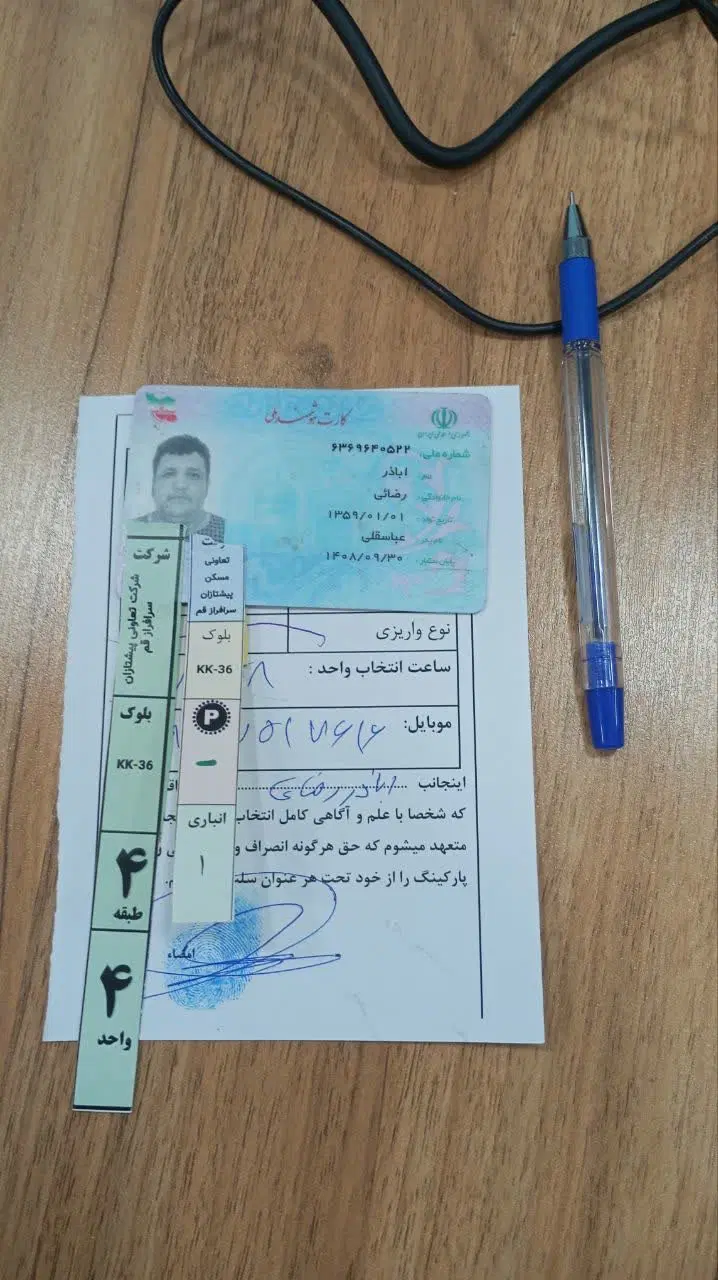 کارت هوشمند ملی
جمهوری اسلامی ایران
شماره ملی: ۶۳۶۹۶۴۰۵۲۲
نام: اباذر
نام خانوادگی: رضائی
تاریخ تولد: ۱۳۵۹/۰۱/۰۱
نام پدر: عباسقلی
پایان اعتبار: ۱۴۰۸/۰۹/۳۰
شرکت
شرکت تعاونی پیشتازان
سرافراز قم
بلوک
KK-36
۴
طبقه
۴
واحد
تعاونی
مسکن
پیشتازان
سرافراز قم
بلوک
KK-36
P
-
انباری
۱
نوع واریزی
ساعت انتخاب واحد :
موبایل:
اینجانب اباذر رضایی
که شخصا با علم و آگاهی کامل
متعهد میشوم که حق هرگونه انصراف و
پارکینگ را از خود تحت هر عنوان
امضاء